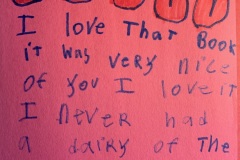 I love That Book
iT was very nice
of you I love it
I never had
a dairy of The